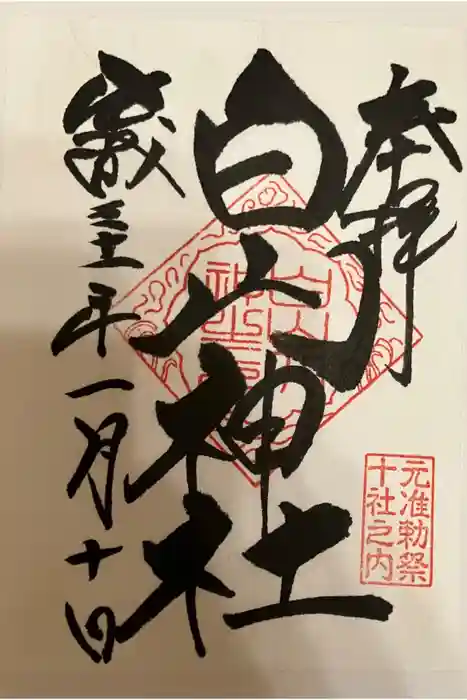 奉拝
元准勅祭
十社之内
白山神社
歳三十一年一月十日